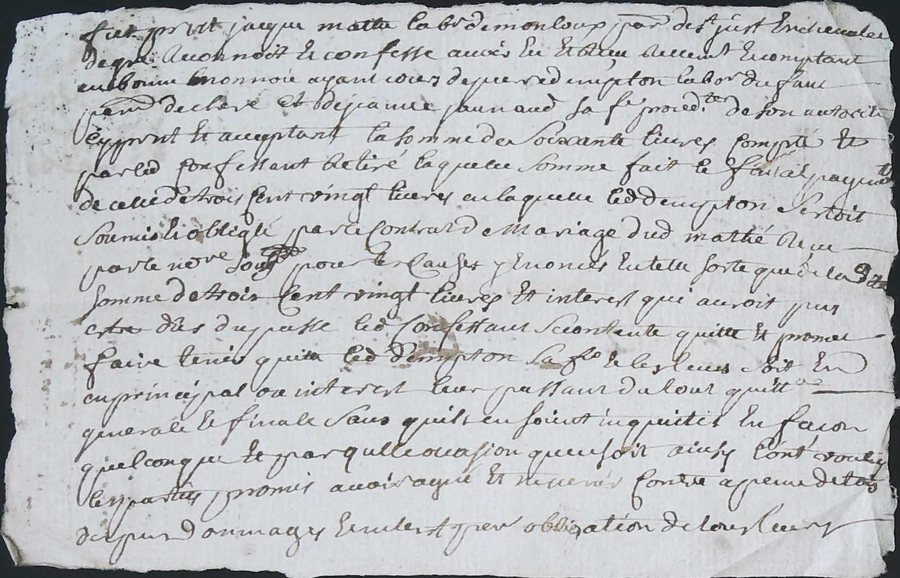 fut p[rése]nt jacque mathe lab.r demonloux par.e de s.t just En chevalet
degré Reconnoit Et confesse avoir Eu Et Reçu Recement En comptant
En bonne monnoie ayant cour de pierre dempton labor. du
par.e declavé Et dejeanne jaunaud sa fe procedte de son autorité
Cy prnt Et acceptant la somme de Soixante livres compté Et
par led Confessant Retiré laquelle somme fait le final payemt
de celle de trois Cent vingt livres en laquelle led dempton Sestoit
Soumis Et obligé par le Contrat de Mariage dud mathé Recu
par le nore Sousé pour les Causes y Enoncés En telle sorte que de la dte
somme de trois Cent vingt livres Et interest que auroit pus
estre dus du passe led Confessant Se contente quitte Et promet
faire tenir quitte led dempton sa fe Et les leurs soit En
En principal ou interest leur passant du tout quittce
generale Et finale Sans quils en soient inquietés En façon
quelconque Et par quelle occasion que se soit ainsy L'ont voulu
les parties promis avoir agreé Et ne venir Contre a peine de tous
despens dommages Et interest par obligation de tous leurs